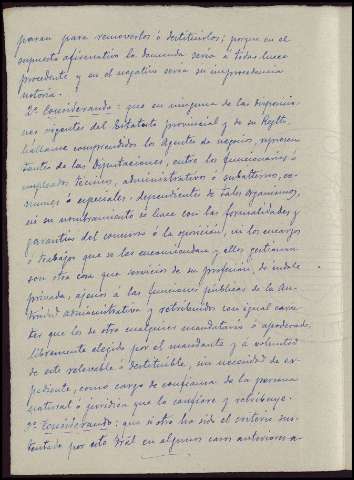 paran para removerlos ó destituirlos; porque en el
supuesto afirmativo la demanda seria á todas luces
procedente y en el negativo seria su improcedencia
notoria.
2º Considerando: que en ninguna de las disposicio-
nes vigentes del Estatuto provincial y de su Reglto.
hállanse comprendidos los Agentes de negocios, represen-
tantes de las Diputaciones, entre los funcionarios ó
empleados técnicos, administrativos ó subalternos, co-
munes ó especiales, dependientes de tales organismos,
ni su nombramiento se hace con las formalidades y
garantias del concurso ó la oposición, ni los encargos
ó trabajos que se les encomiendan y ellos gestionan
son otra cosa que servicios de su profesión, de indole
privada, ajenos á las funciones públicas de la Au-
toridad administrativa y retribuidos con igual carác-
ter que los de otro cualquier mandatario ó apoderado,
libremente elegido por el mandante y á voluntad
de este relevable ó destituible, sin necesidad de ex-
pediente, como cargo de confianza de la persona
natural ó juridica que la confiere y retribuye.
3º Considerando: que si otro ha sido el criterio sus-
tentado por este Tral en algunos casos anteriores a-